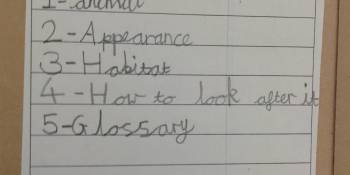 1-animal
2-Appearance
3-Habitat
4-How to look after it
5-Glossary